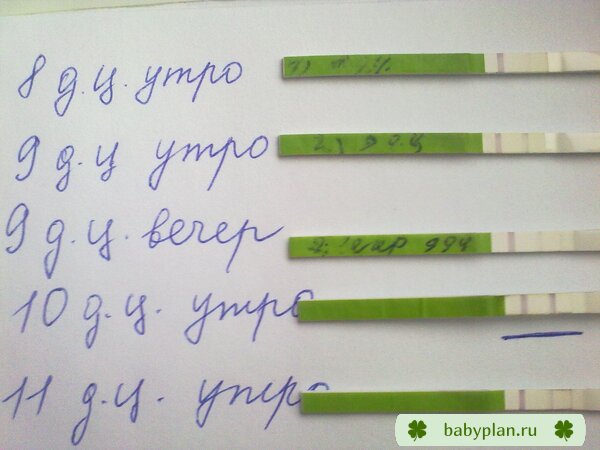 8 д.ц. утро
9 д.ц утро
9 д.ц. вечер
10 д.ц. утро
11 д.ц. утро
babyplan.ru